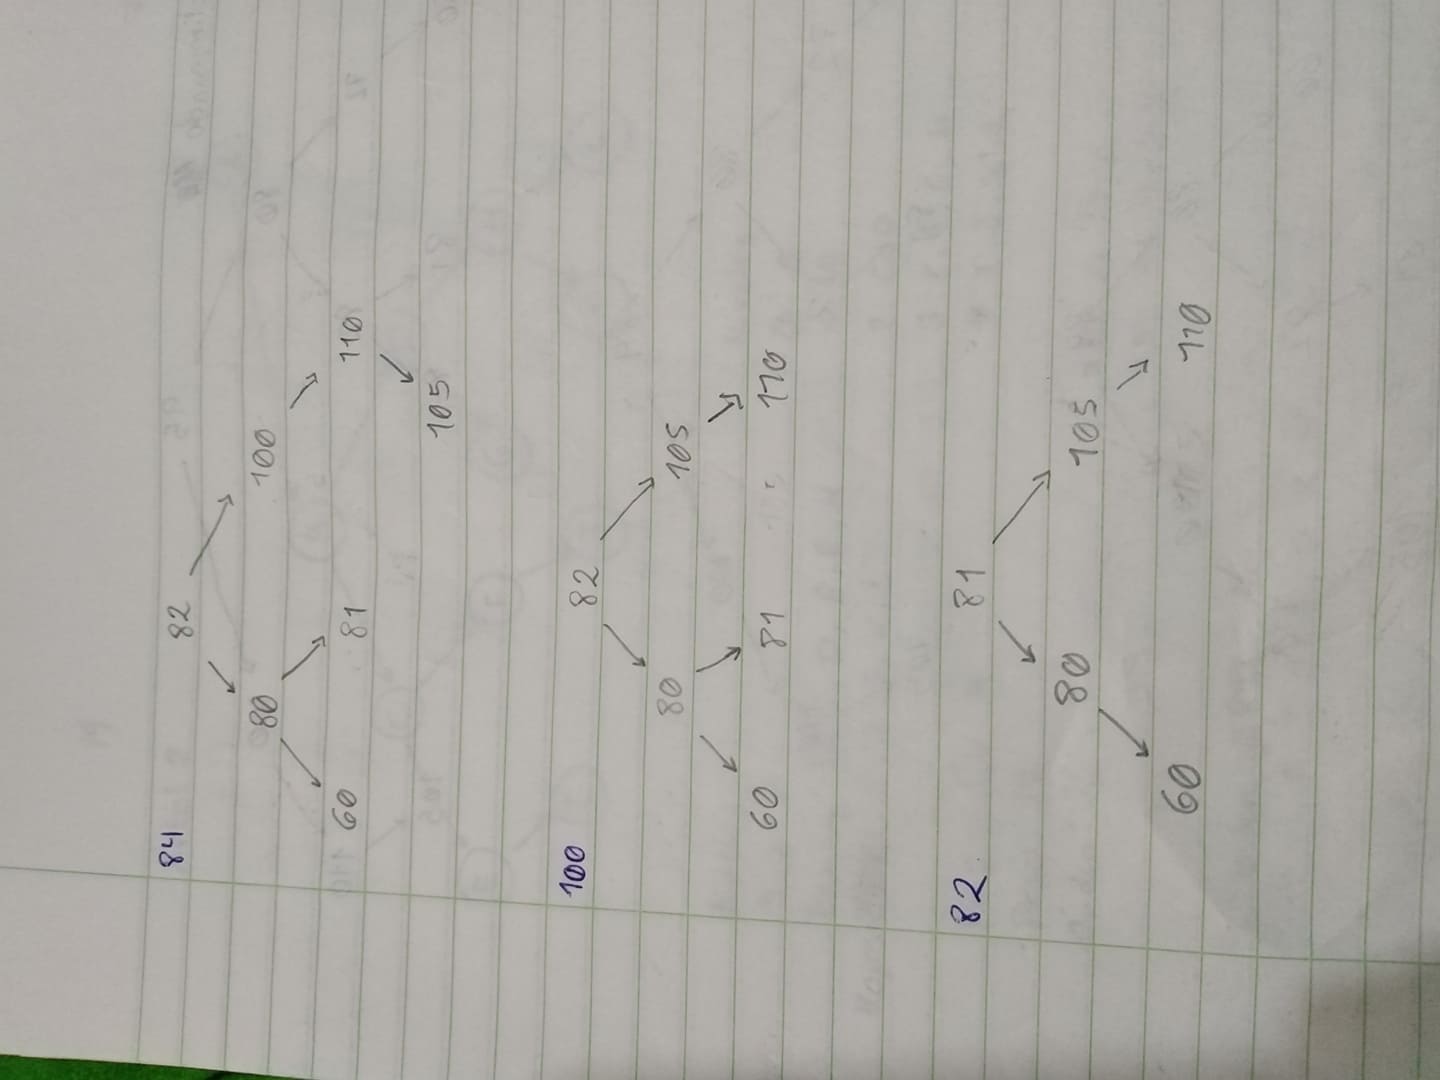 84 82
80 100
60 81 110
105
100 82
80 105
60 81 110
82 81
80 105
60 110